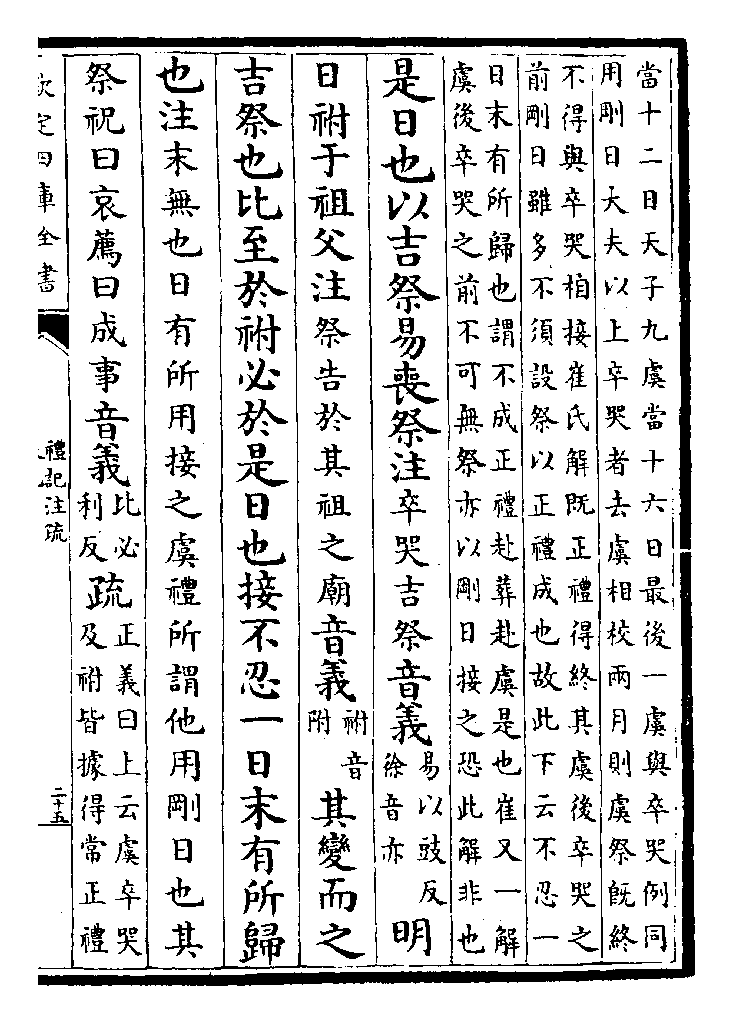 當十二日天子九虞當十六日最後一虞與卒哭例同
用剛日大夫以上卒哭者去虞相校兩月則虞祭旣終
不得與卒哭相接崔氏解既正禮得終其虞後卒哭之
前剛日雖多不須設祭以正禮成也故此下云不忍一
日末有所歸也謂不成正禮赴葬赴虞是也崔又一解
虞後卒哭之前不可無祭亦以剛日接之恐此解非也
是日也以吉祭易喪祭注卒哭吉祭音義易以豉反徐音亦明
日祔于祖父注祭告於其祖之廟音義祔音附其變而之
吉祭也比至於祔必於是日也接不忍一日末有所歸
也注末無也日有所用接之虞禮所謂他用剛日也其
祭祝曰哀薦曰成事音義比必利反疏正義曰上云虞卒哭
及祔皆據得常正禮
欽定四庫全書
禮記注疏
二十五